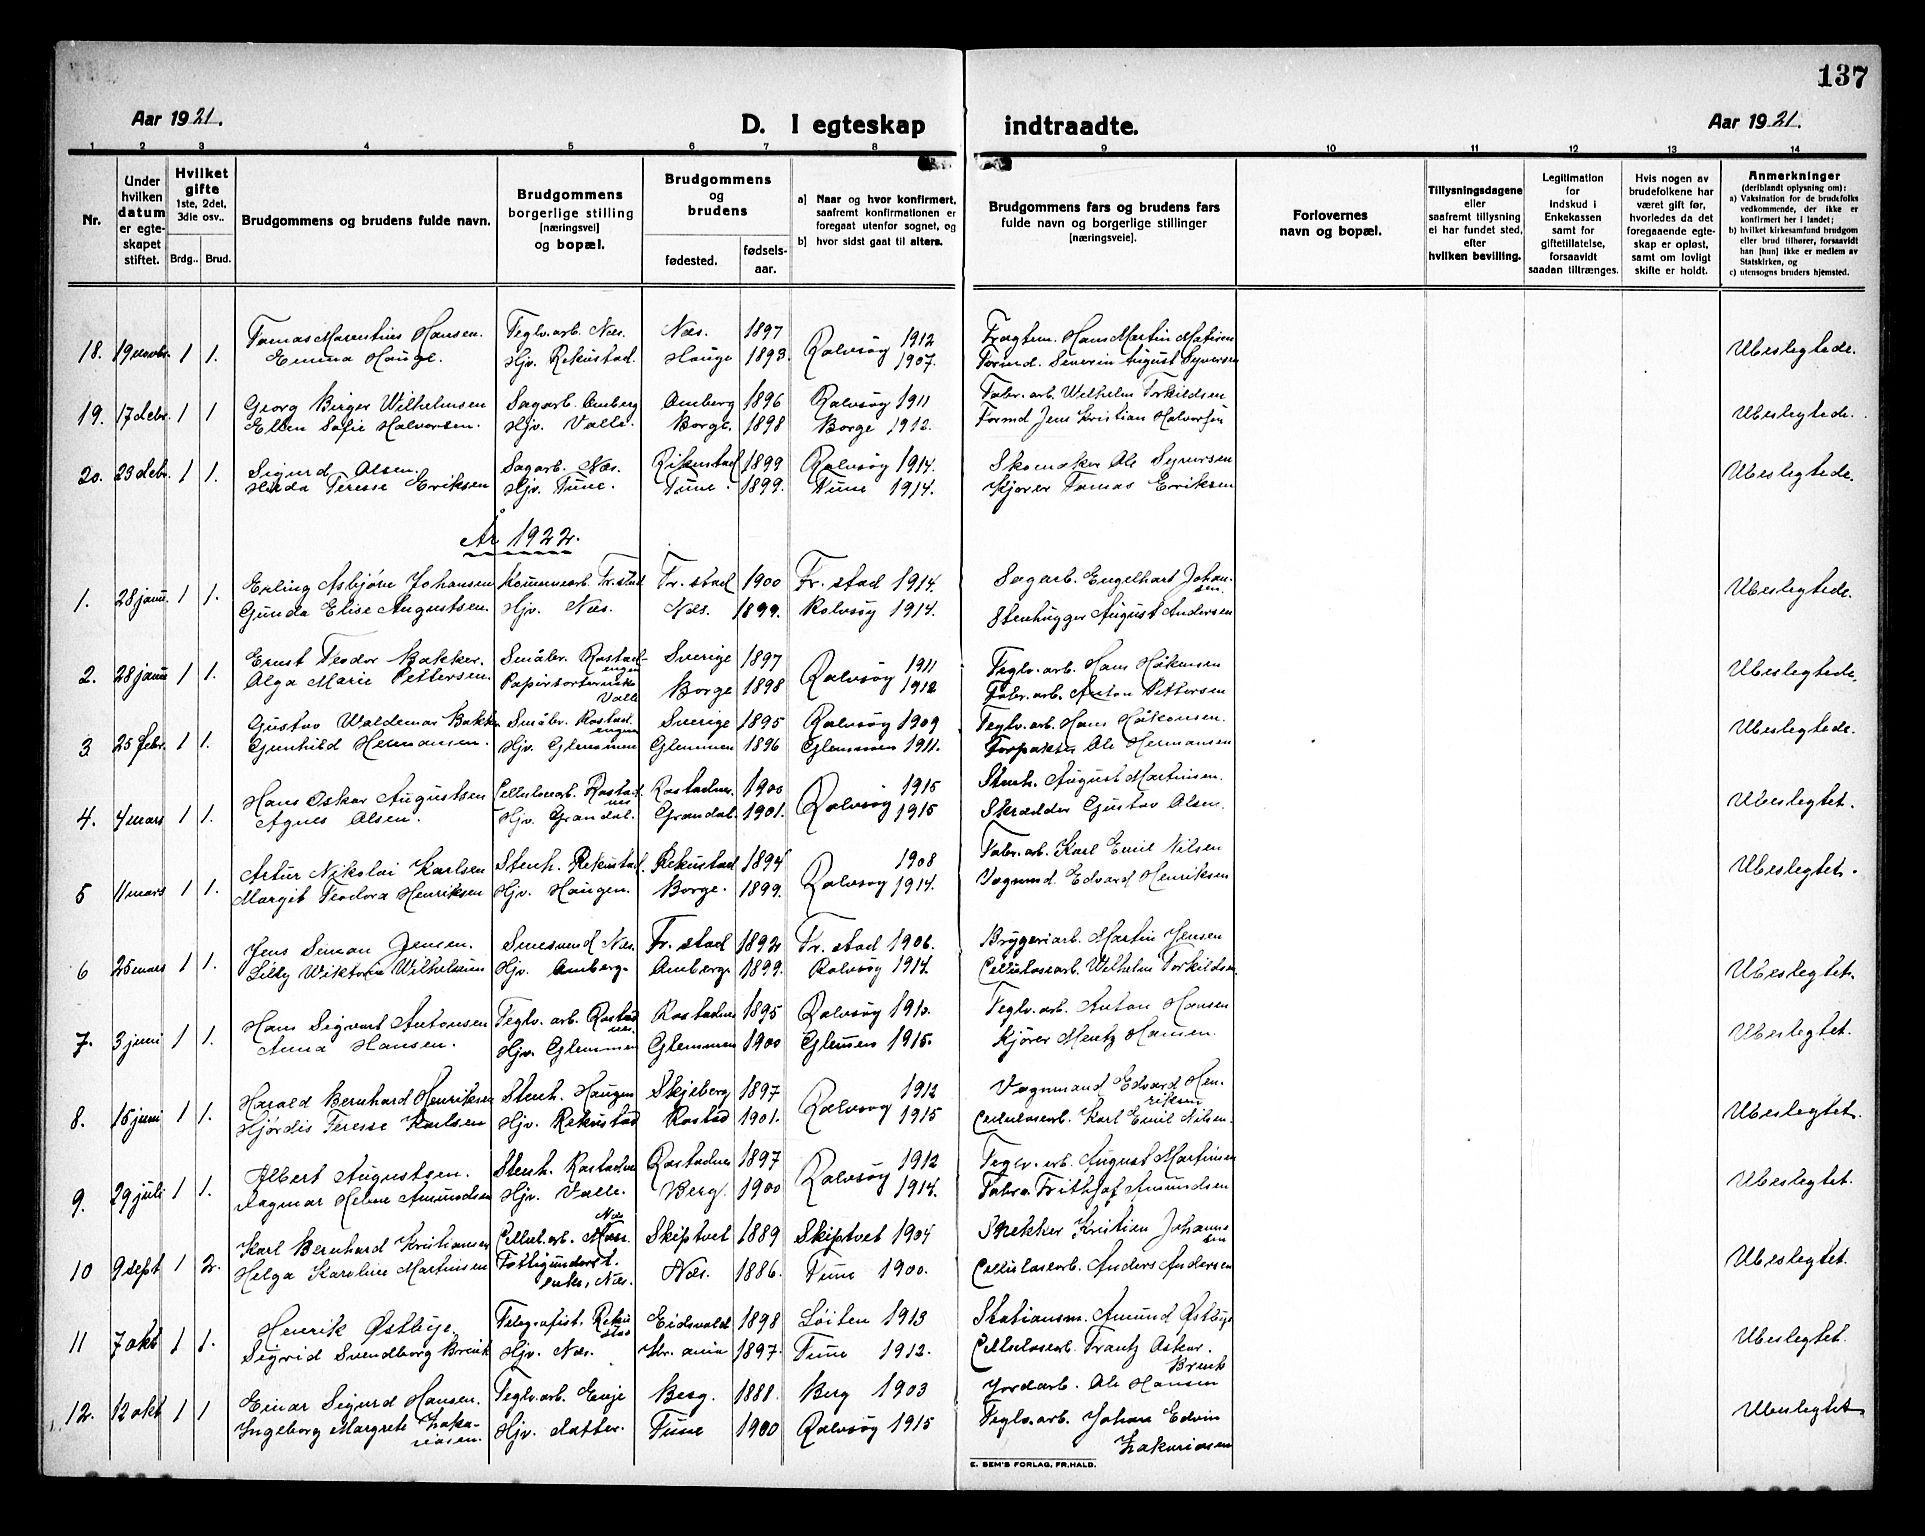 137
Aar 1921.
D. I egteskap indtraadte.
Aar 1921.
1 2 3 4 5 6 7 8 9 10 11 12 13 14
Nr.
Under hvilken datum er egteskapet stiftet.
Hvilket gifte 1ste, 2det, 3die osv..
Brdg.. Brud.
Brudgommens og brudens fulde navn.
Brudgommens borgerlige stilling [næringsvei] og bopæl.
Brudgommens og brudens
fødested.
fødselsaar.
a) Naar og hvor konfirmert, saafremt konfirmationen er foregaat utenfor sognet, og
b) hvor sidst gaat til alters.
Brudgommens fars og brudens fars fulde navn og borgerlige stillinger [næringsveie].
Forlovernes navn og bopæl.
Tillysningsdagene eller saafremt tillysning ei har fundet sted, efter hvilken bevilling.
Legitimation for indskud i Enkekassen samt for giftetillatelse, forsaavidt saadan tiltrænges.
Hvis nogen av brudefolkene har været gift før, hvorledes da det foregaaende egteskap er opløst, samt om lovligt skifte er holdt.
Anmerkninger (deriblandt oplysning om):
a) Vaksination for de brudefolks vedkommende, der ikke er konfirmert her i landet;
b) hvilket kirkesamfund brudgom eller brud tilhører, forsaavidt han [hun] ikke er medlem av Statskirken, og
c) utensogns bruders hjemsted.
18. 19 novbr. 1 1. Tomas Marentius Hansen. Teglv.arb. Næs. Næs. 1897 Rolvsøy 1912 Fragtem. Hans Martin Matisen Ubeslegtede.
Emma Hauge. Hjv. Rekustad. Hauge 1893. 1907. Formd. Severin August Syversen
19. 17 debr. 1 1 Georg Birger Wilhelmsen Sagarb. Amberg Amberg 1896 Rolvsøy 1911 Fabr. arb. Wilhelm Torkildsen Ubeslegtede.
Ellen Sofie Halvorsen. Hjv. Valle. Borge. 1898 Borge 1912. Formd Jens Kristian Halvorsen
20. 23 debr. 1 1. Sigurd Olsen. Sagarb. Næs. Rikustad 1899 Rolvsøy 1914. Skomaker Ole Syversen Ubeslegtede.
Hilda Teresse Eriksen Hjv. Tune. Tune. 1899. Tune 1914. Kjører Tomas Eriksen
År 1922.
1. 28 janu. 1 1. Erling Asbjørn Johansen Kommunearb. Fr.stad Fr. stad 1900 Fr. stad 1914. Sagarb. Engelhart Johansen Ubeslegtede.
Gunda Elise Augustsen. Hjv. Næs. Næs. 1899. Rolvsøy 1914. Stenhugger August Andersen
2. 28 janu 1 1. Ernst Teodor Bakker. Småbr. Rostadengen Sverige 1897 Rolvsøy 1911 Teglv.arb. Hans Håkonsen Ubeslegtede.
Olga Marie Pettersen. Papirsortererske Valle Borge 1898 1912 Fabr. arb. Anton Pettersen
3 25 febr. 1 1. Gustav Waldemar Bakke Småbr. Rostadengen Sverige 1895 Rolvsøy 1909 Teglv.arb. Hans Håkonsen. Ubeslegtede.
Gunhild Hermansen. Hjv. Glemmen Glemmen 1896 Glemmen 1911. Forpakter Ole Hermansen
4. 4 mars 1 1. Hans Oskar Augustsen Cellulosearb. Rostadnes Rostadnes. 1900 Rolvsøy 1915 Stenh. August Martinsen. Ubeslegtet.
Agnes Olsen. Hjv. Grøndal. Grøndal. 1901. 1915 Skrædder Gustav Olsen.
5 11 mars 1 1. Artur Nikolai Karlsen Stenh. Rekustad. Rekustad 1894 Rolvsøy 1908 Fabr. arb. Karl Emil Nilsen Ubeslegtet.
Margit Teodora Henriksen Hjv. Haugen. Borge. 1899. 1914. Vognmd. Edvard Henriksen
6 25 mars 1 1. Jens Simon Jensen. Smesvend Næs. Fr. stad 1892 Fr. stad 1906. Bryggeriarb. Martin Jensen Ubeslegtet.
Lilly Wiktoria Wilhelmsen Hjv. Amberg. Amberg. 1899. Rolvsøy 1914. Cellulosearb. Wilhelm Torkildsen.
7. 3 juni 1 1. Hans Sigvart Antonsen Teglv. arb. Rostadnes. Rostadnes 1895 Rolvsøy 1910. Teglv. arb. Anton Hansen Ubeslegtet.
Anna Hansen. Hjv. Glemmen Glemmen 1900 Glemmen 1915. Kjører Mentz Hansen.
8. 15 juni 1 1. Harald Bernhard Henriksen Stenh. Haugen Skjeberg 1897 Rolvsøy 1912 Vognmand Edvard Henriksen Ubeslegtet.
Hjørdis Teresse Karlsen Hjv. Rekustad Rostad 1901. 1915 Cellulosearb. Karl Emil Nilsen.
9. 29 juli 1 1. Albert Augustsen. Stenh. Rostadne Rostadnes 1897 Rolvsøy 1912 Teglv. arb. August Martinsen Ubeslegtet.
Dagmar Helene Amundsen Hjv. Valle. Berg. 1900 1914. Fabra. Frithjof Amundsen
10 9 sept 1 2. Karl Bernhard Kristiansen Cellul.arb. Næs Skiptvet 1889 Skiptvet 1904 Snekker Kristian Johannsen Ubeslegtet.
Helga Karoline Martinsen Fattigunderst. enke, Næs. Næs. 1886. Tune 1900. Cellulosearb. Anders Andersen
11 7 okt 1 1. Henrik Østbye. Telegrafist, Rekustad Eidsvold 1898 Løiten 1913 Stationsm. Amund Østbye Ubeslegtet.
Sigrid Svendborg Brenk Hjv. Næs. Kr.ania 1897. Tune 1912. Cellulosearb. Frantz Oskar. Brenk
12. 12 okt 1 1 Einar Sigurd Hansen. Teglv.arb. Evje Berg. 1888. Berg 1903 Jordarb. Ole Hansen Ubeslegtet
Ingeborg Margrete Zakariasen. Hjv. Satter. Tune 1900 Rolvsøy 1915 Teglv.arb. Johan Edvin Zakariasen
E. SEM'S FORLAG, FR.HALD.